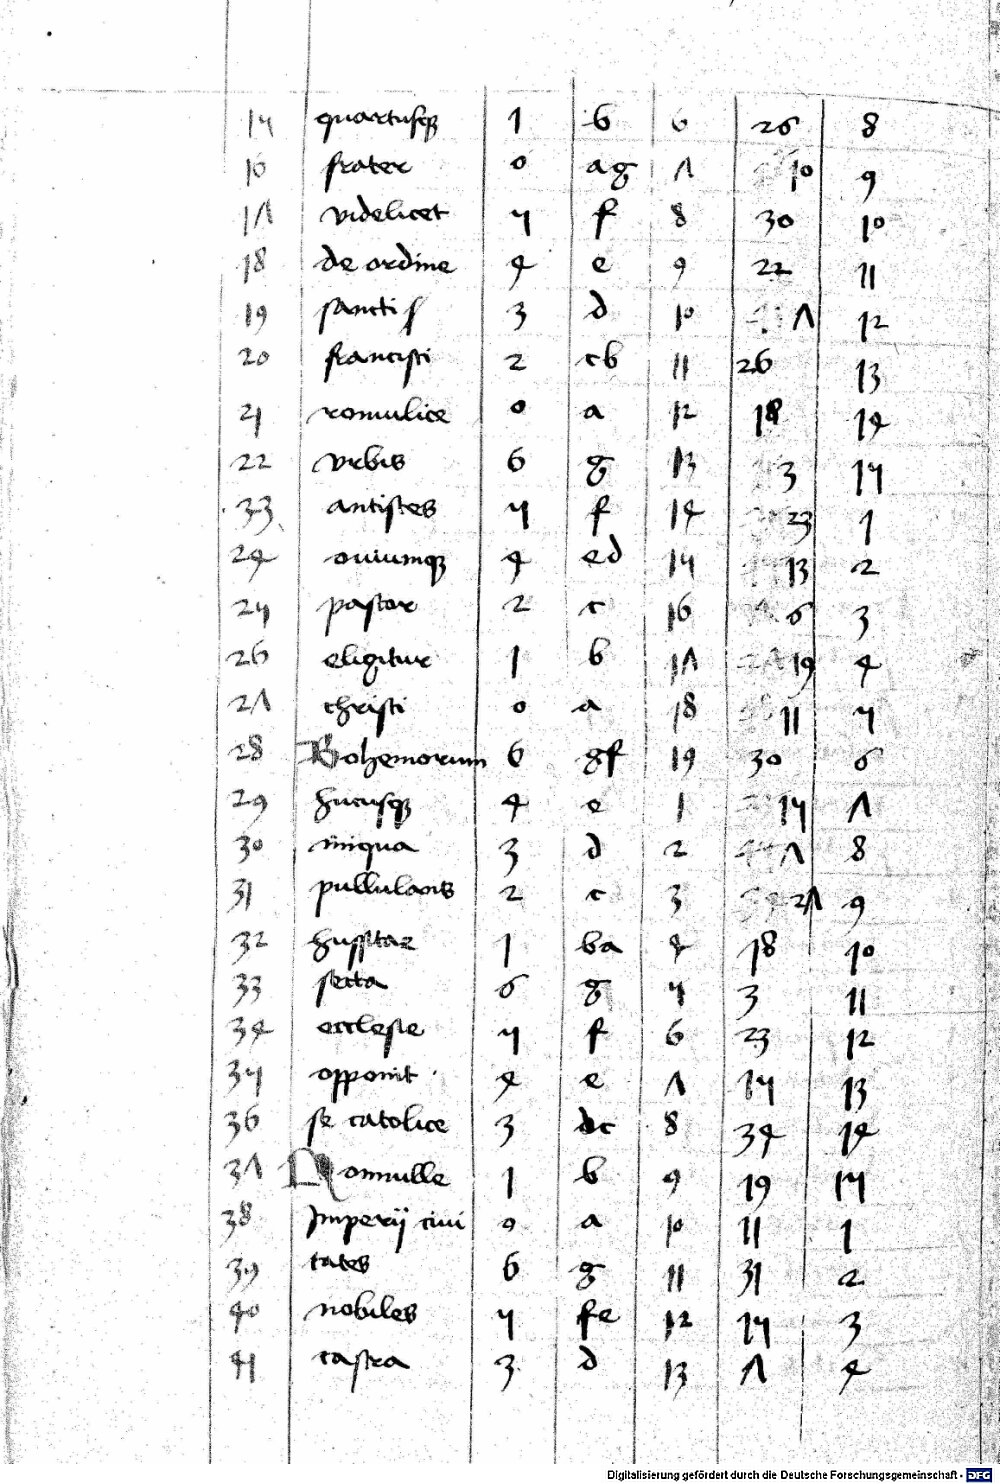 15 quartusq 1 b 6 26 8
16 frater 0 ag 7 10 9
17 videlicet 5 f 8 30 10
18 de ordine 4 e 9 22 11
19 sancti f 3 d 10 7 12
20 francisci 2 cb 11 26 13
21 romulice 0 a 12 18 14
22 vrbis 6 g 13 3 15
33 antistes 5 f 14 23 1
24 ouiumq 4 ed 15 13 2
25 pastor 2 c 16 6 3
26 eligitur 1 b 17 19 4
27 christi 0 a 18 11 5
28 Bohemorum 6 gf 19 30 6
29 hucusq 4 e 1 15 7
30 iniqua 3 d 2 7 8
31 pullulans 2 c 3 27 9
32 hussitar 1 ba 4 18 10
33 secta 6 g 5 3 11
34 ecclesie 5 f 6 23 12
35 opponit 4 e 7 15 13
36 se catolice 3 dc 8 34 14
37 Nonnulle 1 b 9 19 15
38 Imperij ciui 0 a 10 11 1
39 tates 6 g 11 31 2
40 nobiles 5 fe 12 15 3
41 castra 3 d 13 7 4
Digitalisierung gefördert durch die Deutsche Forschungsgemeinschaft - DFG